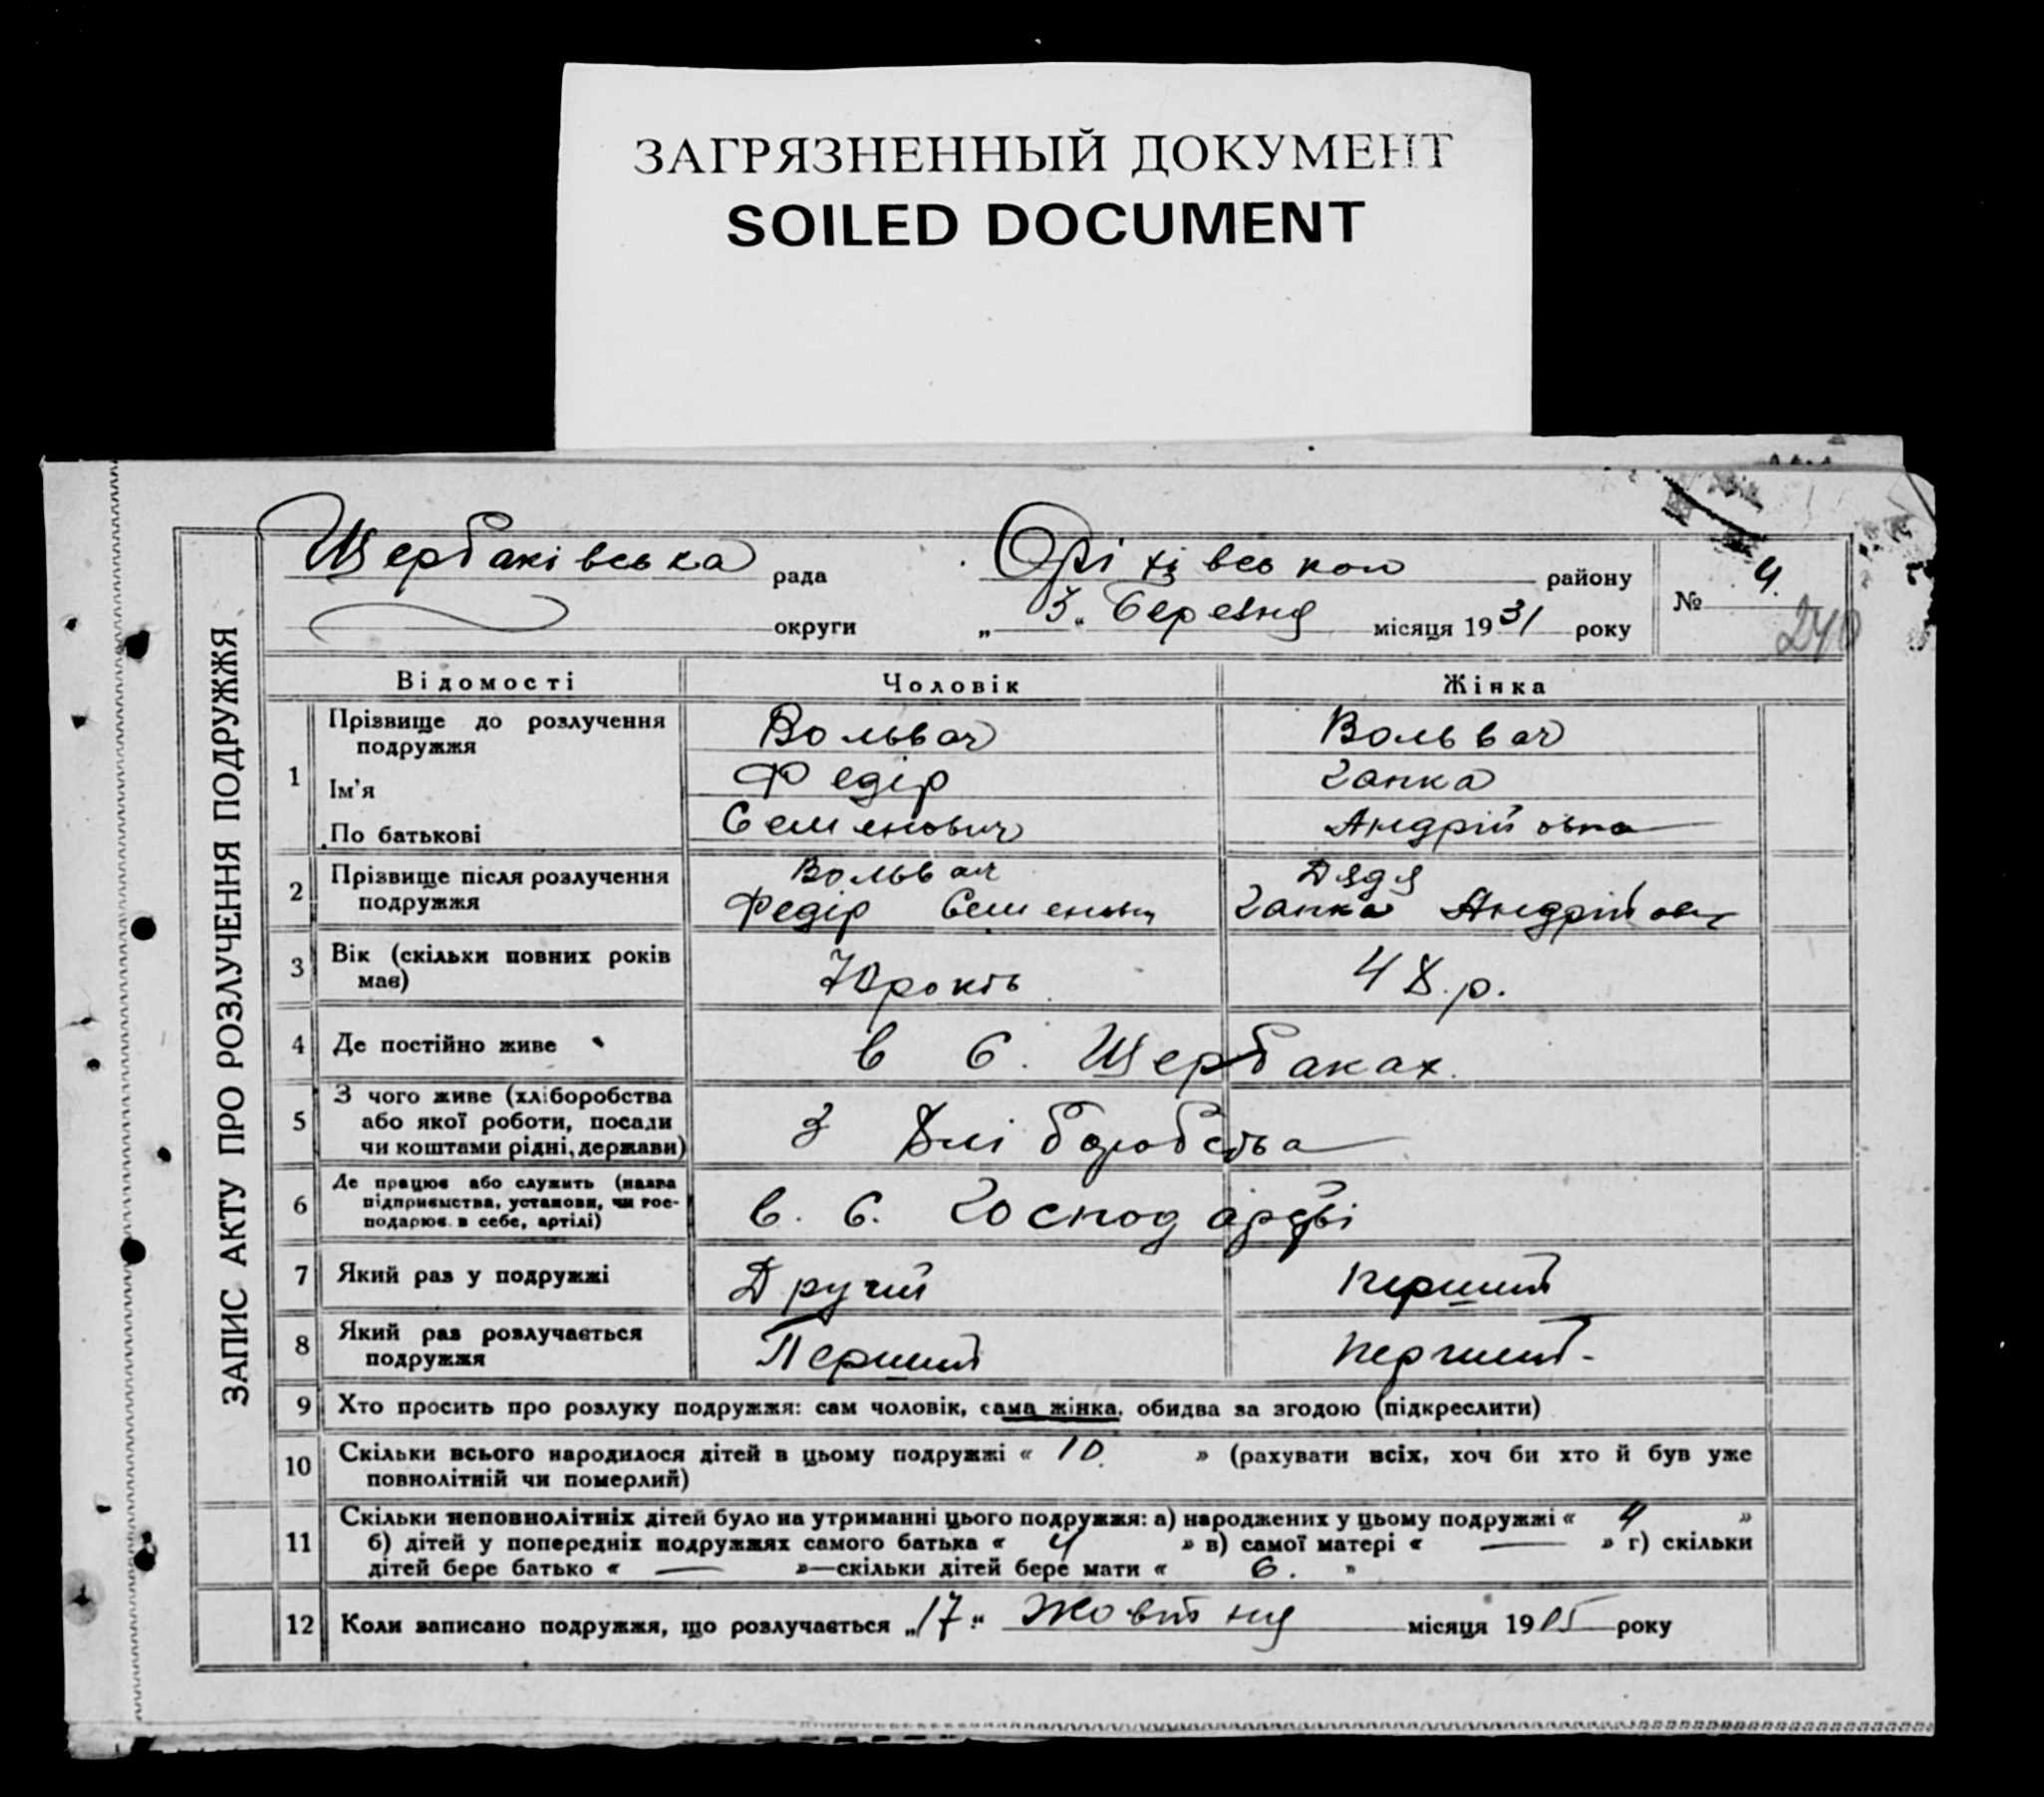 ЗАГРЯЗНЕННЫЙ ДОКУМЕНТ
SOILED DOCUMENT
ЗАПИС АКТУ ПРО РОЗЛУЧЕННЯ ПОДРУЖЖЯ
Щербаківська рада Оріхівської району № 4.
округи „ 3 “ Березня місяця 1931 року 240
Відомості Чоловік Жінка
1 Прізвище до розлучення подружжя Вольвач Вольвач
Ім'я Федір Ганка
По батькові Семенович Андрійовна
2 Прізвище після розлучення Вольвач Дядя
подружжя Федір Семенович Ганка Андрійовн
3 Вік (скільки повних років
має) 70 років 48.р.
4 Де постійно живе в с. Щербаках.
5 З чого живе (хліборобства
або якої роботи, посади
чи коштами рідні, держави) З Хліборобства
6 Де працює або служить (назва
підприємства, установи, чи гос-
подарює в себе, артілі) в. с. Господарстві
7 Який раз у подружжі Другий Перший
8 Який раз розлучається
подружжя Перший Перший-
9 Хто просить про розлуку подружжя: сам чоловік, сама жінка, обидва за згодою (підкреслити)
10 Скільки всього народилося дітей в цьому подружжі « 10. » (рахувати всіх, хоч би хто й був уже
повнолітній чи померлий)
11 Скільки неповнолітніх дітей було на утриманні цього подружжя: а) народжених у цьому подружжі « 4 »
б) дітей у попередніх подружжях самого батька « 4 » в) самої матері « — » г) скільки
дітей бере батько « — »—скільки дітей бере мати « 6. »
12 Коли записано подружжя, що розлучається „17.“ Жовтня місяця 1905 року